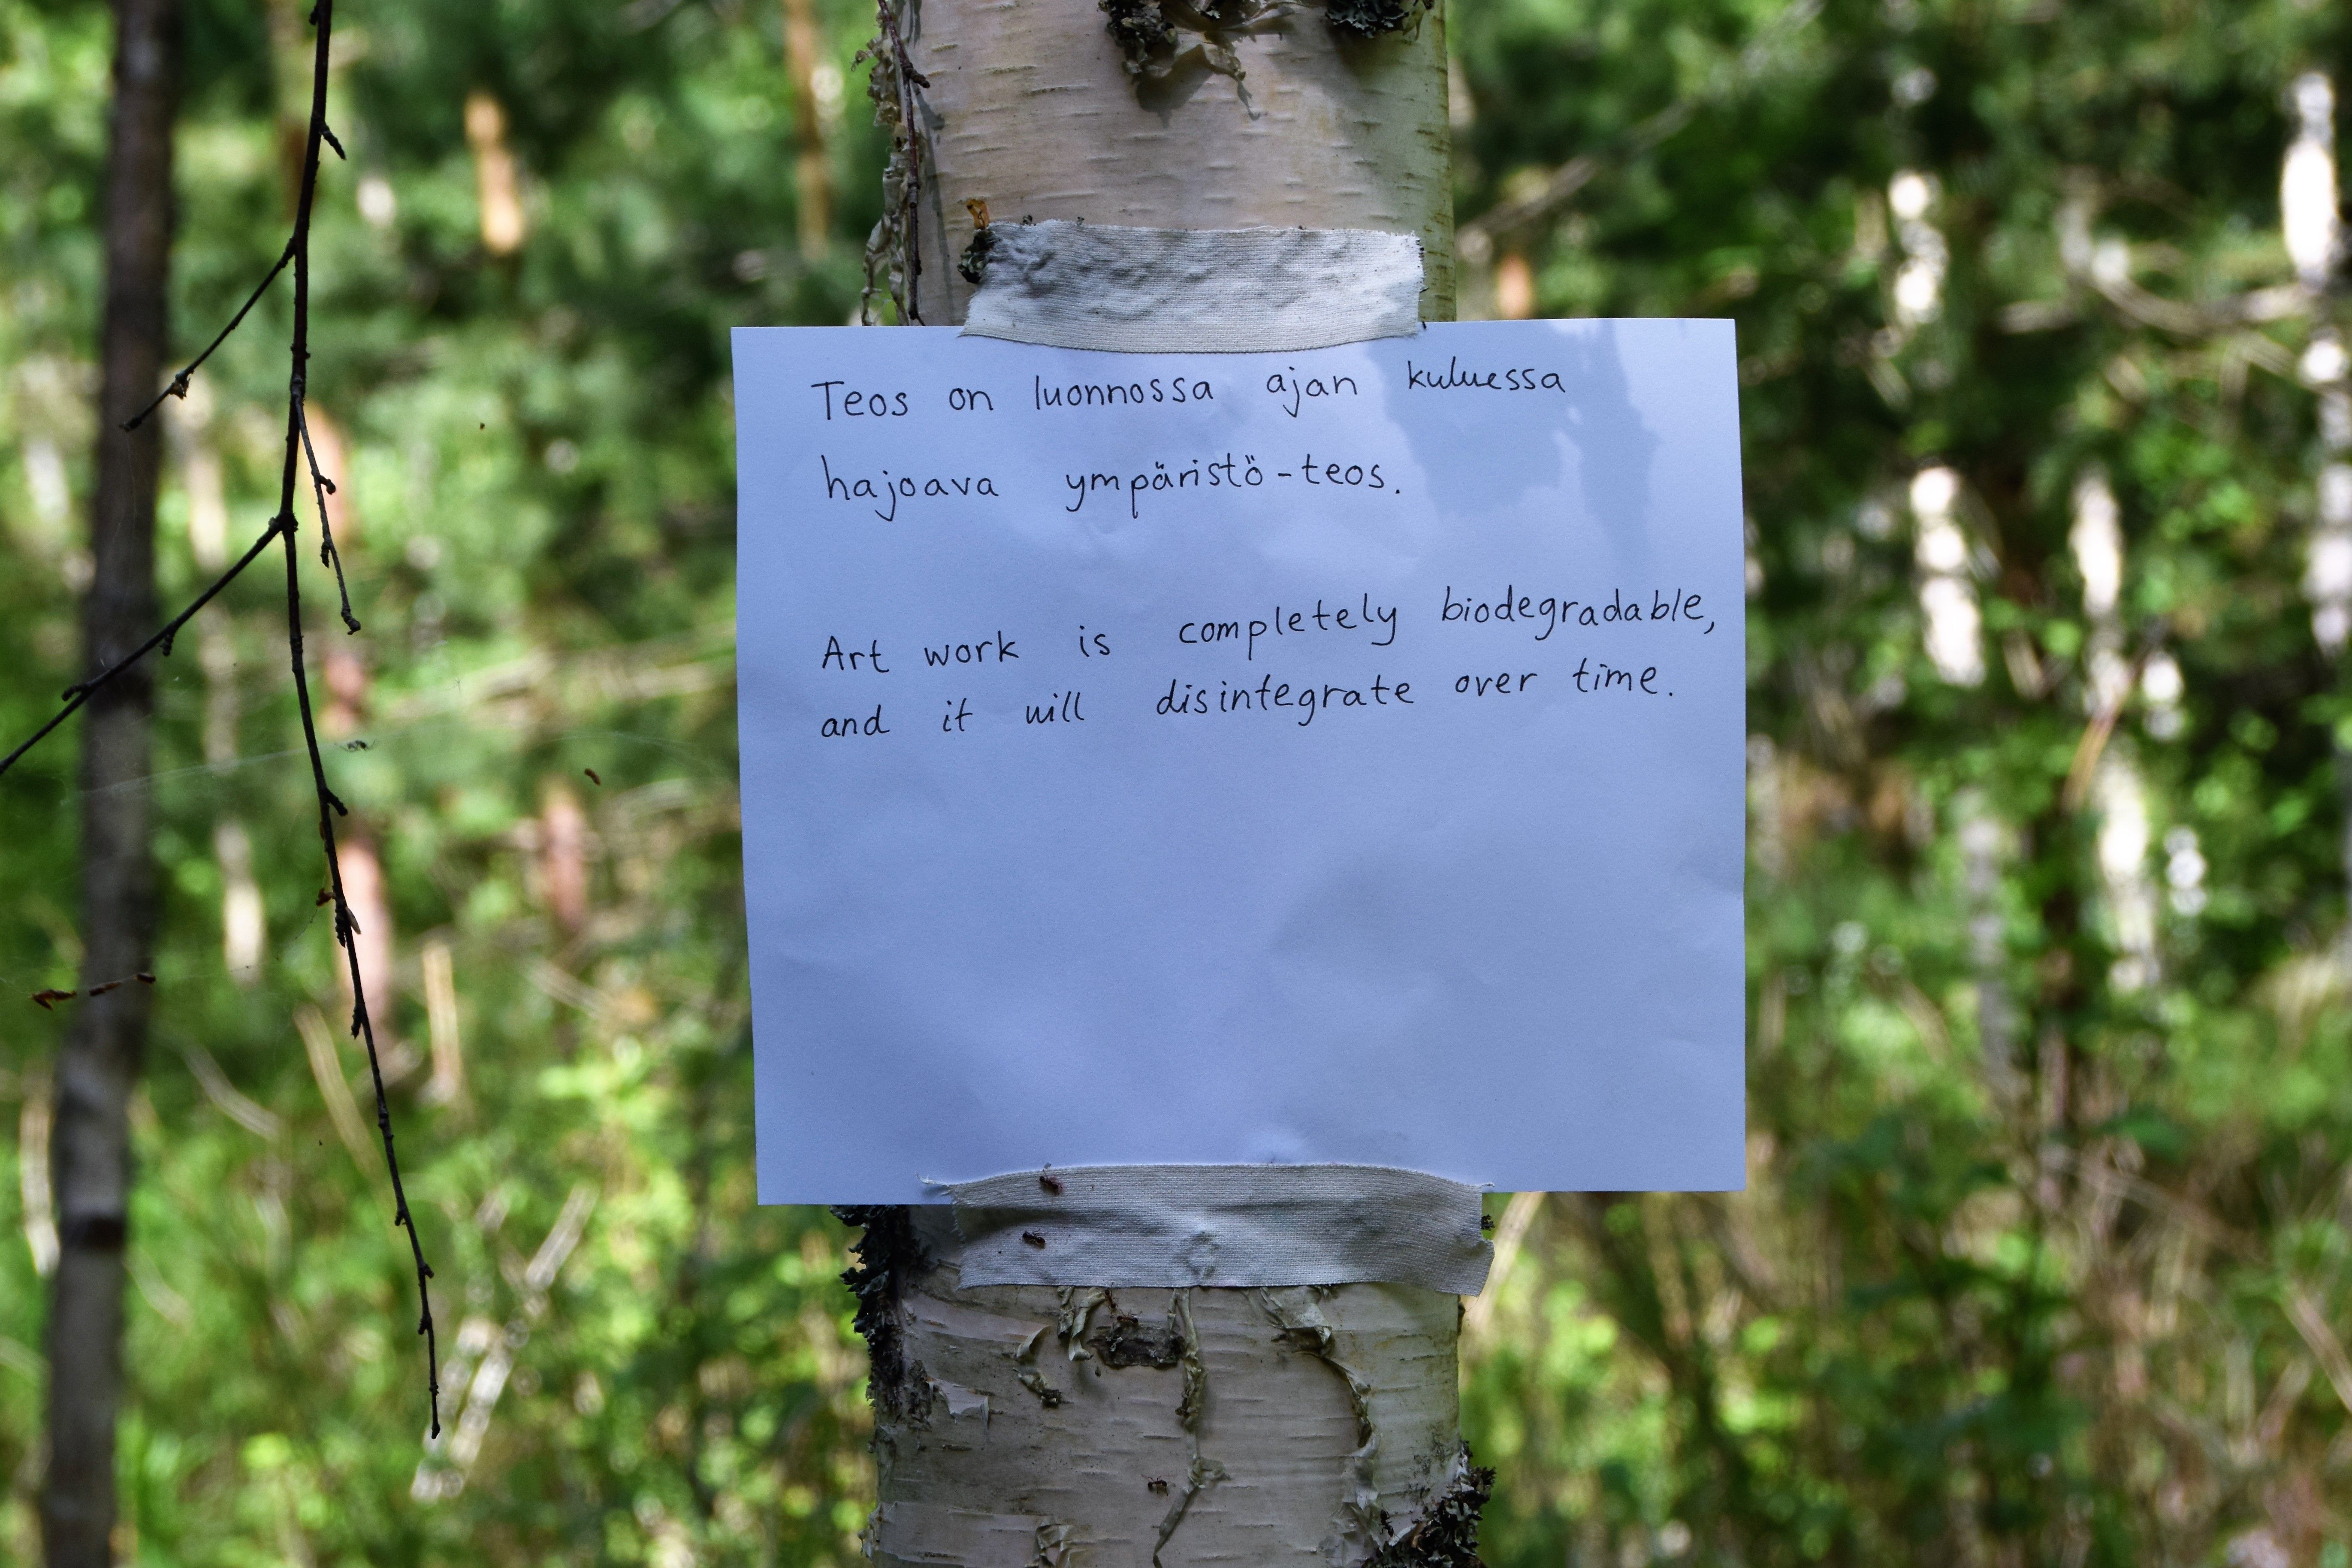 Teos on luonnossa ajan kuluessa
hajoava ympäristö-teos.
Art work is completely biodegradable,
and it will disintegrate over time.